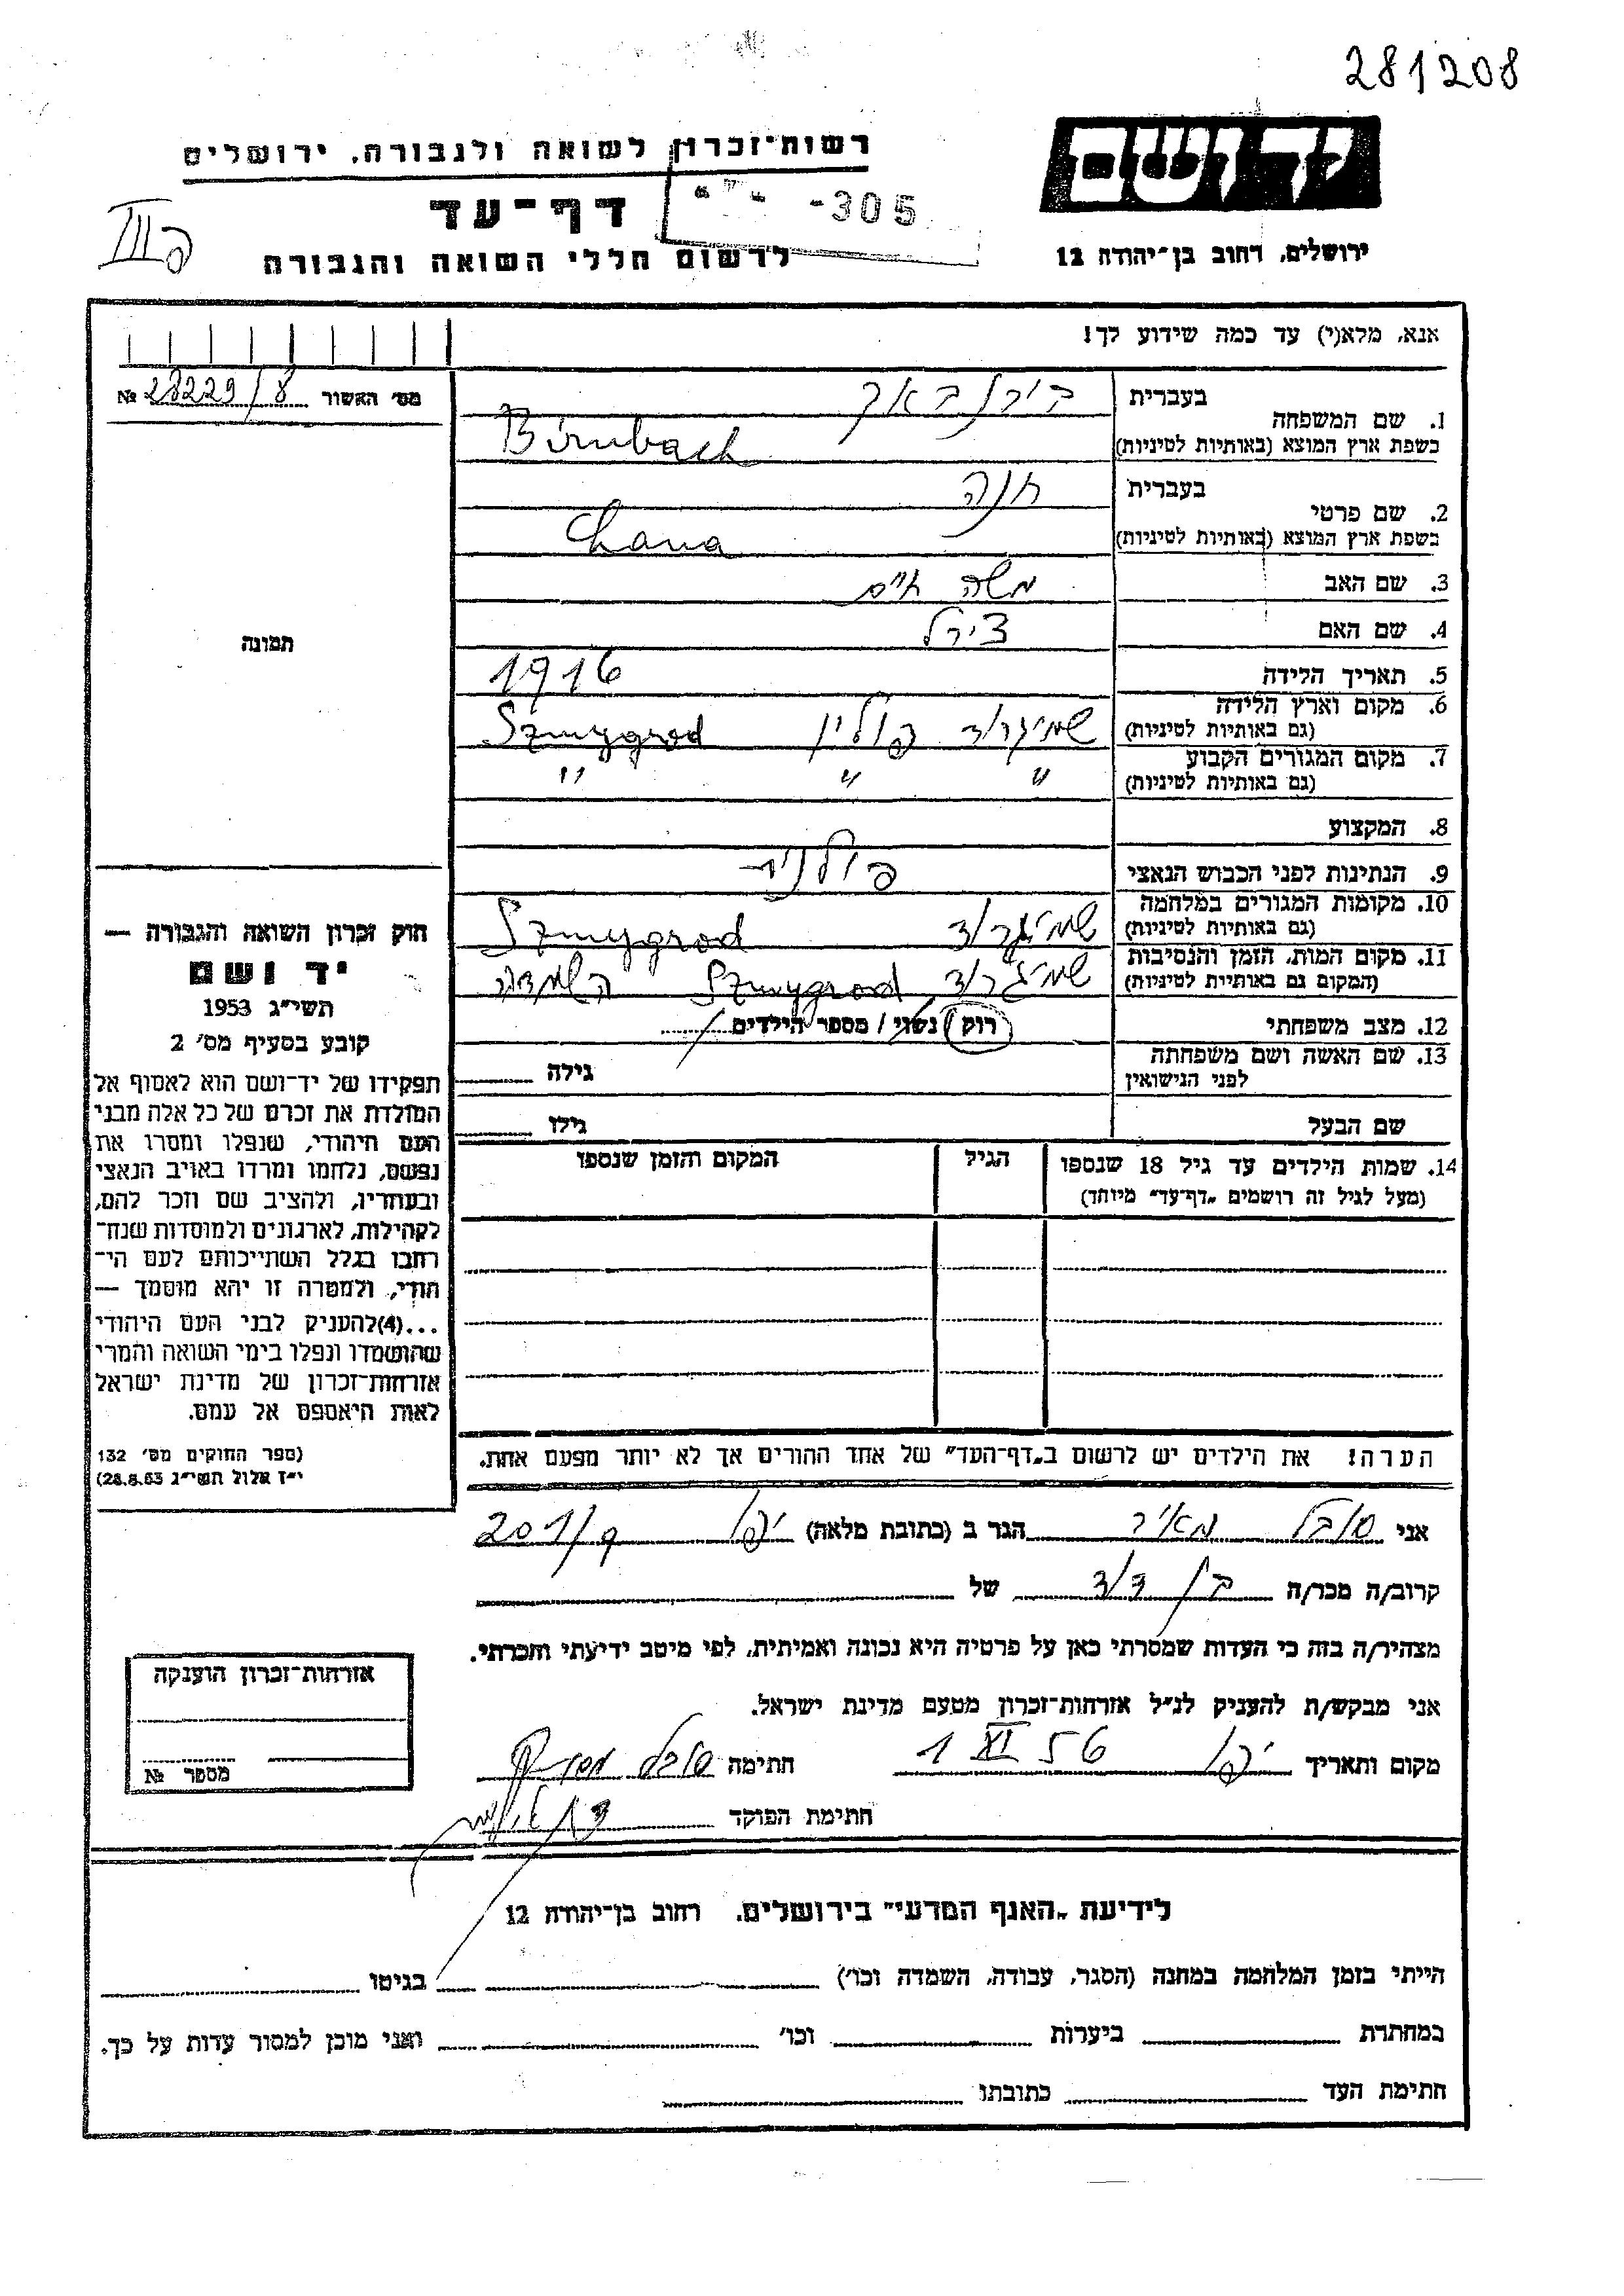 281208
יד ושם
ירושלים, רחוב בן-יהודה 12
רשות-זכרון לשואה ולגבורה, ירושלים
דף-עד
-305
לרשום חללי השואה והגבורה
III
אנא, מלא(י) עד כמה שידוע לך!
מס' האשור 28229/8 №
1. שם המשפחה
בעברית בירנבאך
בשפת ארץ המוצא (באותיות לטיניות) Birnbach
2. שם פרטי
בעברית חנה
בשפת ארץ המוצא (באותיות לטיניות) Chana
3. שם האב משה חיים
4. שם האם צירל
תמונה
5. תאריך הלידה 1916
6. מקום וארץ הלידה (גם באותיות לטיניות) שמיגרוד פולין Szmygrod
7. מקום המגורים הקבוע (גם באותיות לטיניות) " " "
8. המקצוע
9. הנתינות לפני הכבוש הנאצי פולנית
10. מקומות המגורים במלחמה (גם באותיות לטיניות) שמיגרוד Szmygrod
11. מקום המות, הזמן והנסיבות (המקום גם באותיית לטיניות) שמיגרוד Szmygrod
12. מצב משפחתי רווק / נשוי / מספר הילדים
13. שם האשה ושם משפחתה לפני הנישואין
גילה
שם הבעל
גילו
14. שמות הילדים עד גיל 18 שנספו
(מעל לגיל זה רושמים "דף-עד" מיוחד)
הגיל
המקום והזמן שנספו
הערה! את הילדים יש לרשום ב"דף-העד" של אחד ההורים אך לא יותר מפעם אחת.
חוק זכרון השואה והגבורה —
יד ושם
תשי"ג 1953
קובע בסעיף מס' 2
תפקידו של יד-ושם הוא לאסוף אל
המולדת את זכרם של כל אלה מבני
העם היהודי, שנפלו ומסרו את
נפשם, נלחמו ומרדו באויב הנאצי
ובעוזריו, ולהציב שם וזכר להם,
לקהילות, לארגונים ולמוסדות שנח-
רבו בגלל השתייכותם לעם הי-
הודי, ולמטרה זו יהא מוסמך —
...(4)להעניק לבני העם היהודי
שהושמדו ונפלו בימי השואה והמרי
אזרחות-זכרון של מדינת ישראל
לאות היאספם אל עמם.
(ספר החוקים מס' 132
י"ז אלול תשי"ג 28.8.53)
אני סובל מאיר הגר ב (כתובת מלאה) יפו 201/9
קרוב/ה מכר/ה בן דוד של
מצהיר/ה בזה כי העדות שמסרתי כאן על פרטיה היא נכונה ואמיתית, לפי מיטב ידיעתי והכרתי.
אני מבקש/ת להעניק לנ"ל אזרחות-זכרון מטעם מדינת ישראל.
מקום ותאריך יפו 1 XI 56 חתימה סובל
חתימת הפוקד
אזרחות-זכרון הוענקה
מספר №
לידיעת "האגף המדעי" בירושלים, רחוב בן-יהודה 12
הייתי בזמן המלחמה במחנה (הסגר, עבודה, השמדה וכו') בגיטו
במחתרת ביערות וכו' ואני מוכן למסור עדות על כך.
חתימת העד כתובתו